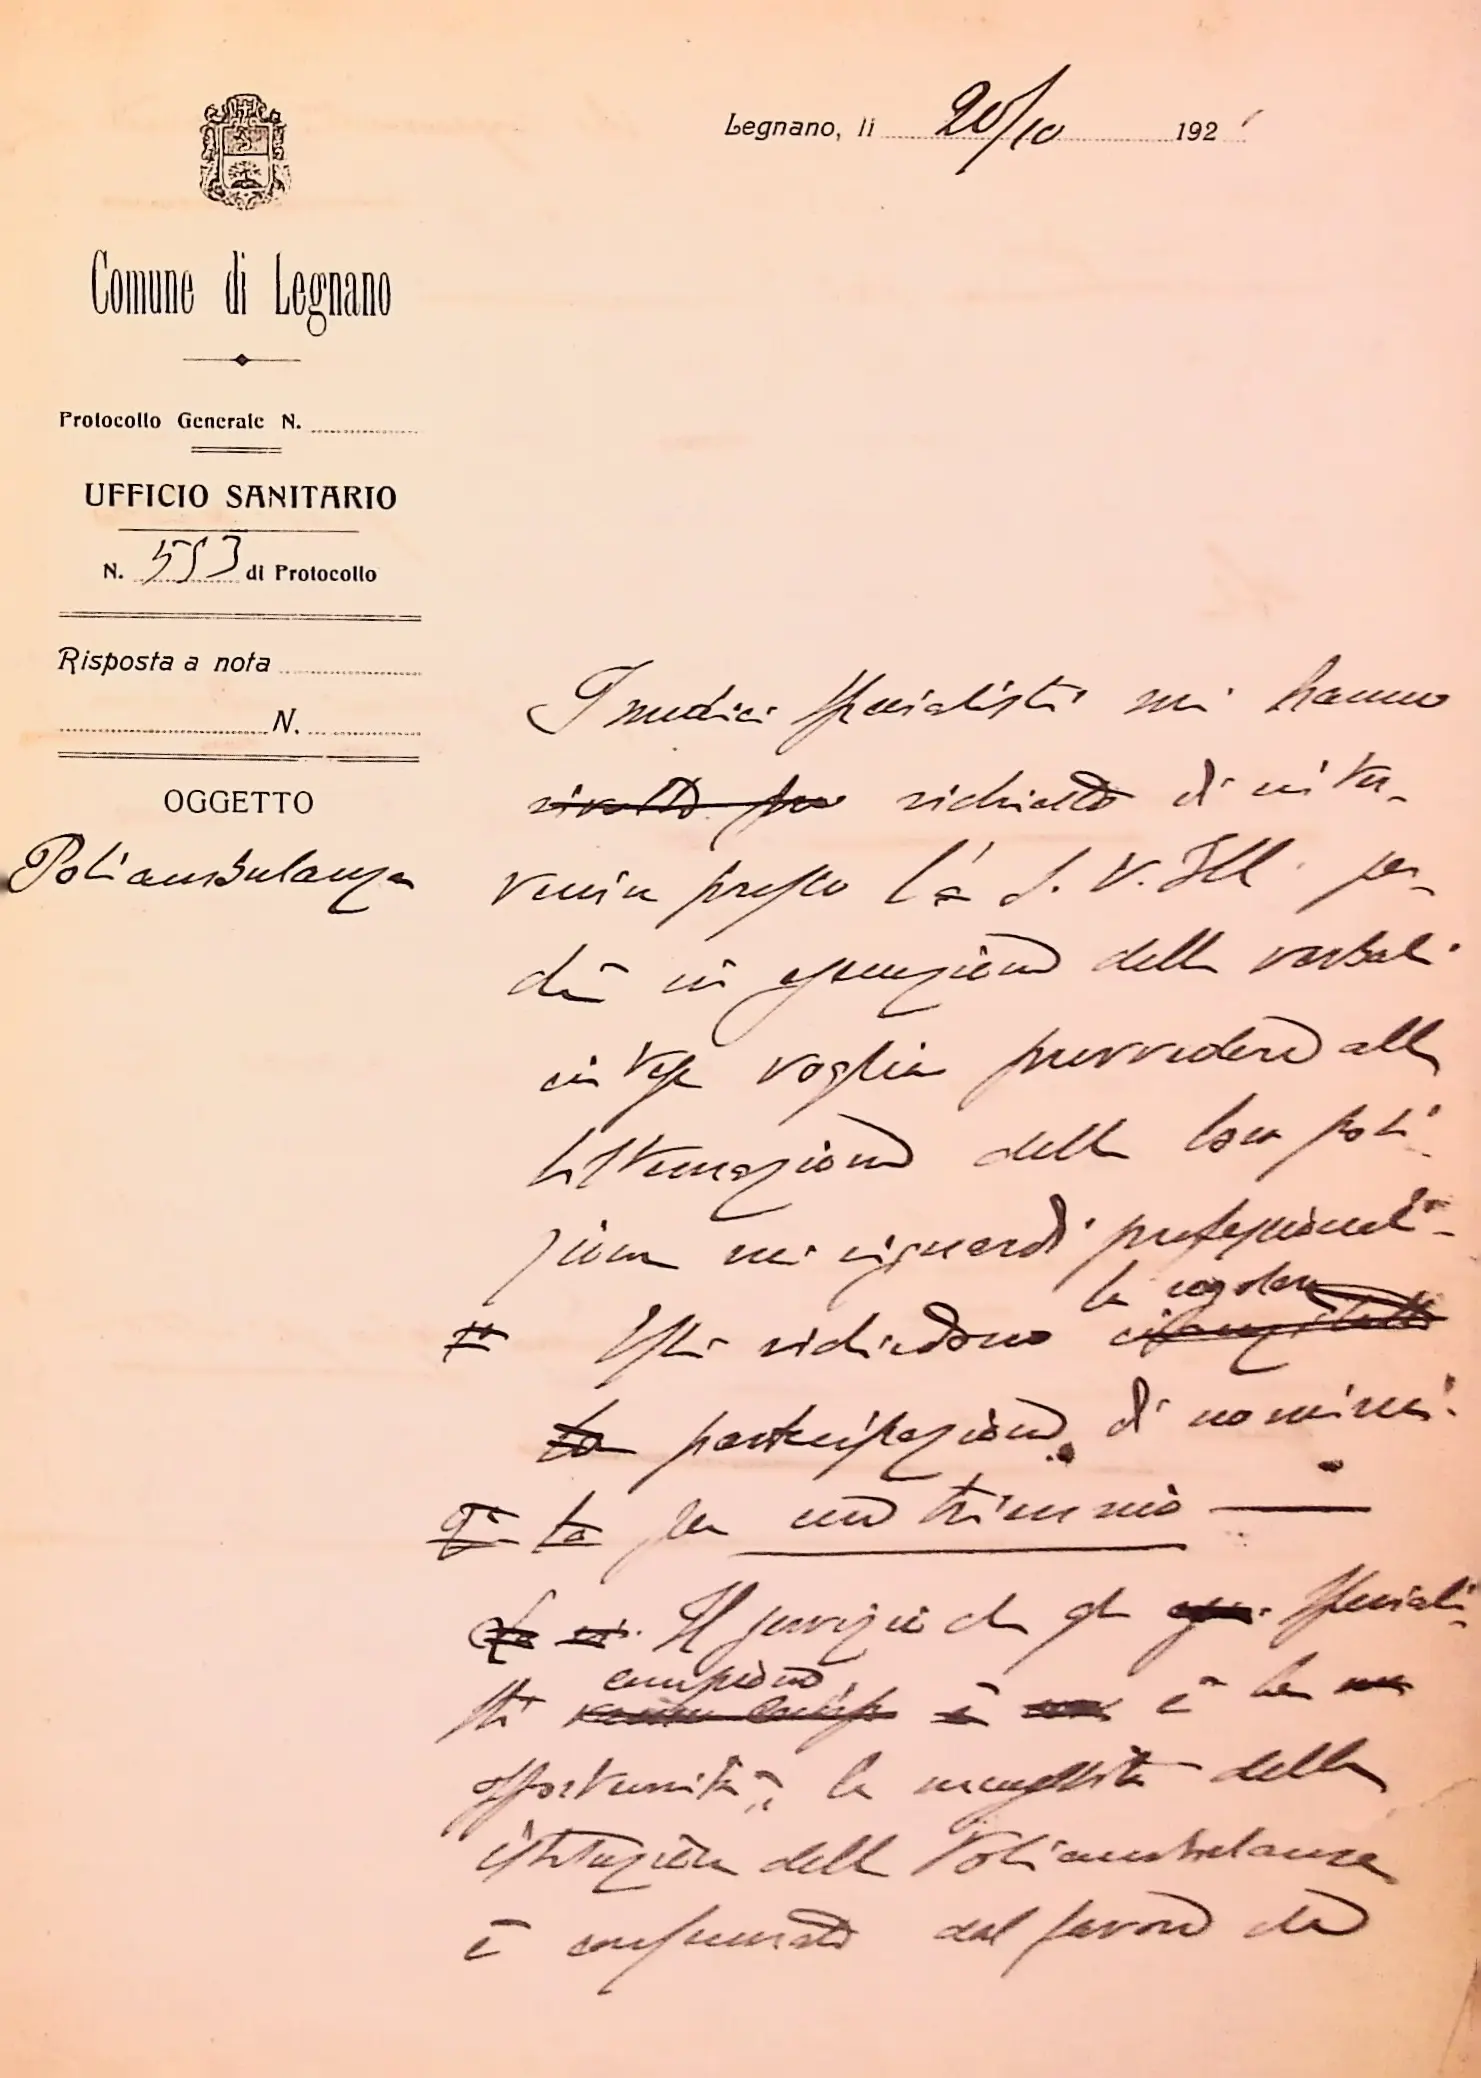 Legnano, li 20/10 192
Comune di Legnano
Protocollo Generale N.
UFFICIO SANITARIO
N. 553 di Protocollo
Risposta a nota
N.
OGGETTO
Poliambulanza
I medici specialisti mi hanno
richiesto di inter-
venire presso la S. V. Ill. per-
chè in esecuzione delle verbali
intese voglia provvedere alla
sistemazione della loro posi-
zione nei riguardi professionali-
la regolare
Essi richiedono
partecipazione di nomina
per un triennio
Il servizio che gli speciali-
compiono
sti è la
opportunità, la necessità della
istituzione della Poliambulanza
è confermato dal favore che